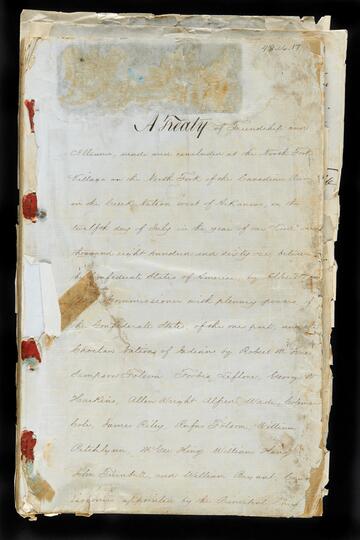 48.16.17
A Treaty of Friendship and
Alliance, made and concluded at the North Fork
Village on the North Fork of the Canadian River
in the Creek Nation west of Arkansas, on the
twelfth day of July in the year of our Lord one
thousand eight hundred and sixty one between
Confederate States of America by Albert
Commissioner with plenary powers
the Confederate States, of the one part, and
Choctaw Nations of Indians by Robert M.
Sampson Folsom Forbis Leflore, George W
Harkins, Allen Wright Alfred Wade, Coleman
Cole, James Riley Rufus Folsom William
Pitchlynn, McGee King William King
John Turnbull and William Bryant,
appointed by the Principal